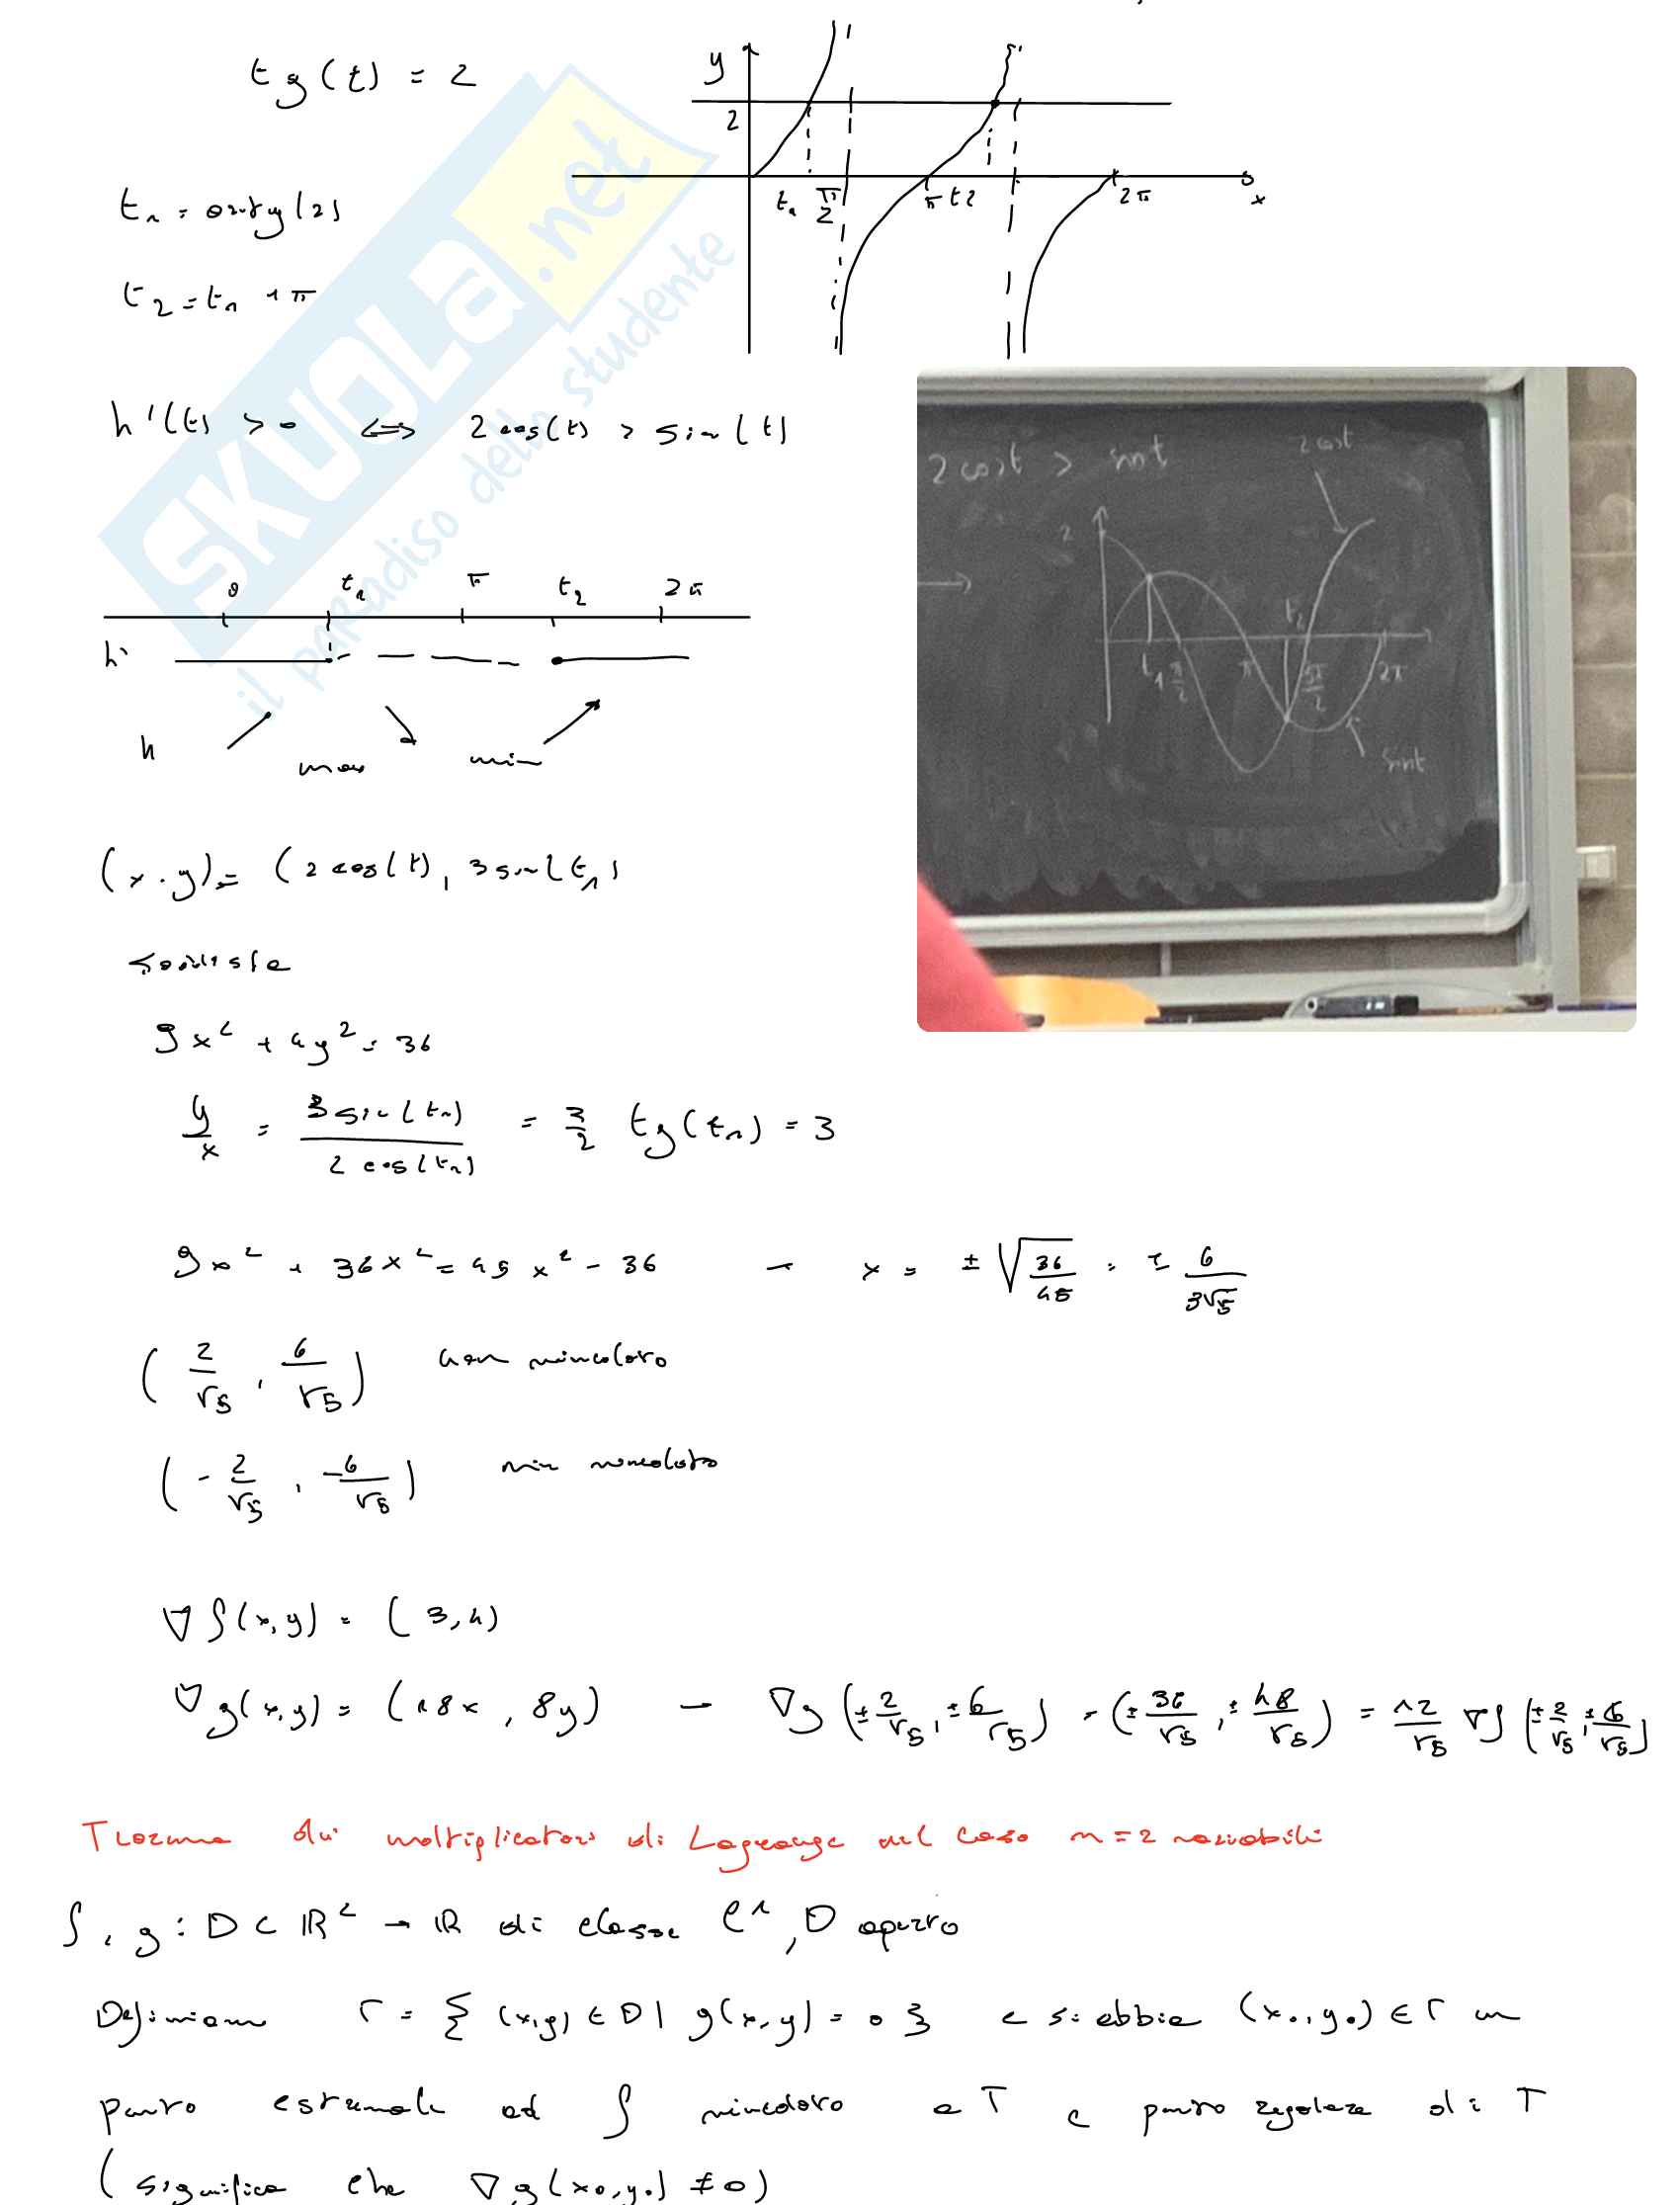 tg(t) = 2
y
2
t₁ π/2 π t2 2π x
t₁ = arctg(2)
t₂ = t₁ + π
h'(t) > 0 ⇔ 2cos(t) > sin(t)
2 cost > sint
2 cost
2
t₂
t₁ π/2 π 3π/2 2π
sint
0 t₁ π t₂ 2π
h'
h max min
(x,y) = (2cos(t), 3sin(t₁)
soddisfa
9x² + 4y² = 36
y/x = 3sin(t₁)/2cos(t₁) = 3/2 tg(t₁) = 3
9x² + 36x² = 45x² = 36 → x = ±√(36/45) = ± 6/(3√5)
(2/√5, 6/√5) max vincolato
(-2/√5, -6/√5) min vincolato
∇f(x,y) = (3,4)
∇g(x,y) = (18x, 8y) → ∇g(±2/√5, ±6/√5) = (±36/√5, ±48/√5) = 12/√5 ∇f(±2/√5, ±6/√5)
Teorema dei moltiplicatori di Lagrange nel caso n=2 variabili
f, g : D ⊂ ℝ² → ℝ di classe C¹, D aperto
Definiamo Γ = { (x,y) ∈ D | g(x,y) = 0 } e si abbia (x₀,y₀) ∈ Γ un
punto estremale ad f vincolato a Γ e punto regolare di Γ
(significa che ∇g(x₀,y₀) ≠ 0)
SKUOLA.net
il paradiso dello studente